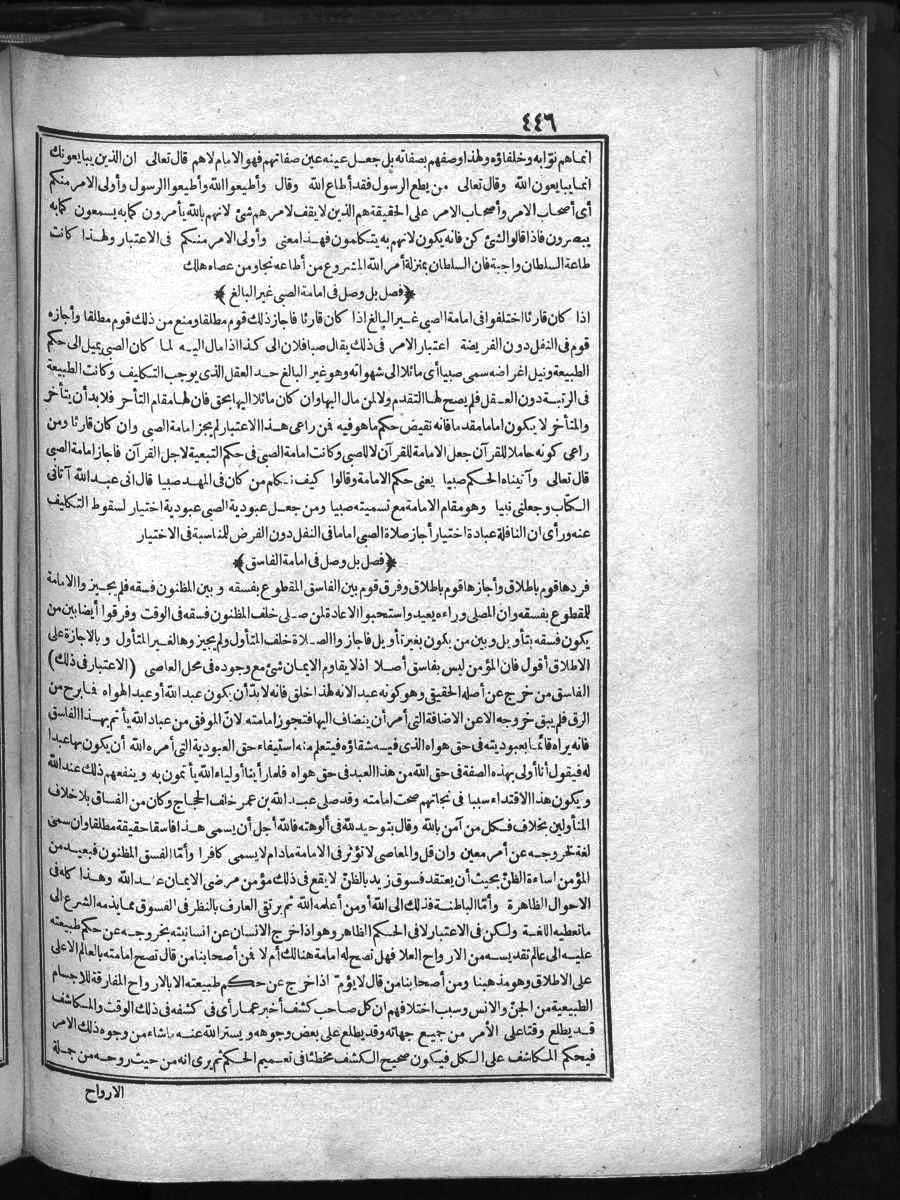 ٤٤٦
انماهم نوّابه وخلفاؤه ولهذا وصفهم بصفاته بل جعل عينه عين صفاتهم فهو الامام لاهم قال تعالى ان الذين يبايعونك
انما يبايعون الله وقال تعالى من يطع الرسول فقد أطاع الله وقال وأطيعوا الله وأطيعوا الرسول وأولى الامر منكم
أى أصحاب الامر وأصحاب الامر على الحقيقة هم الذين لا يقف لامرهم شئ لانهم بالله يأمرون كما به يسمعون كما به
يبصرون فاذا قالوا لشئ كن فانه يكون لانهم به يتكلمون فهذا معنى وأولى الامر منكم فى الاعتبار ولهذا كانت
طاعة السلطان واجبة فان السلطان بمنزلة أمر الله المشروع من أطاعه نجا ومن عصاه هلك
﴿فصل بل وصل فى امامة الصبى غير البالغ﴾
اذا كان قارئا اختلفوا فى امامة الصبى غير البالغ اذا كان قارئا فأجاز ذلك قوم مطلقا ومنع من ذلك قوم مطلقا وأجازه
قوم فى النفل دون الفريضة اعتبار الامر فى ذلك يقال صبا فلان الى كذا اذا مال اليه لما كان الصبى يميل الى حكم
الطبيعة ونيل اغراضه سمى صبيا أى مائلا الى شهواته وهو غير البالغ حد العقل الذى يوجب التكليف وكانت الطبيعة
فى الرتبة دون العقل فلم يصح لها التقدم ولا لمن مال اليها وان كان مائلا اليها بحق فان لها مقام التأخر فلا بد أن يتأخر
والمتأخر لا يكون اماما مقدما فانه نقيض حكم ما هو فيه فمن راعى هذا الاعتبار لم يجز امامة الصبى وان كان قارئا ومن
راعى كونه حاملا للقرآن جعل الامامة للقرآن لا للصبى وكانت امامة الصبى فى حكم التبعية لاجل القرآن فأجاز امامة الصبى
قال تعالى وآتيناه الحكم صبيا يعنى حكم الامامة وقالوا كيف نكلم من كان فى المهد صبيا قال انى عبد الله آتانى
الكتاب وجعلنى نبيا وهو مقام الامامة مع تسميته صبيا ومن جعل عبودية الصبى عبودية اختيار لسقوط التكليف
عنه ورأى ان النافلة عبادة اختيار أجاز صلاة الصبى اماما فى النفل دون الفرض للمناسبة فى الاختيار
﴿فصل بل وصل فى امامة الفاسق﴾
فردها قوم باطلاق وأجازها قوم باطلاق وفرق قوم بين الفاسق المقطوع بفسقه وبين المظنون فسقه فلم يجيزوا الامامة
للمقطوع بفسقه وان المصلى وراءه يعيد واستحبوا الاعادة لمن صلى خلف المظنون فسقه فى الوقت وفرقوا أيضا بين من
يكون فسقه بتأويل وبين من يكون بغير تأويل فأجازوا الصلاة خلف المتأول ولم يجيزوها لغير المتأول وبالاجازة على
الاطلاق أقول فان المؤمن ليس بفاسق أصلا اذ لا يقاوم الايمان شئ مع وجوده فى محل العاصى (الاعتبار فى ذلك)
الفاسق من خرج عن أصله الحقيقى وهو كونه عبدا لانه لهذا خلق فانه لا بدّ أن يكون عبد الله أو عبد الهواه فما برح من
الرق فلم يبق خروجه الا عن الاضافة التى أمر أن ينضاف اليها فتجوز امامته لانّ الموفق من عباد الله يأتم بهذا الفاسق
فانه يراه قائما بعبوديته فى حق هواه الذى فيه شقاؤه فيتعلم منه استيفاء حق العبودية التى أمره الله أن يكون بها عبدا
له فيقول أنا أولى بهذه الصفة فى حق الله من هذا العبد فى حق هواه فلما رأينا أولياء الله يأتمون به وينفعهم ذلك عند الله
ويكون هذا الاقتداء سببا فى نجاتهم صحت امامته وقد صلى عبد الله بن عمر خلف الحجاج وكان من الفساق بلا خلاف
المتأولين بخلاف فكل من آمن بالله وقال بتوحيد لله فى ألوهته فالله أجل أن يسمى هذا فاسقا حقيقة مطلقا وان سمى
لغة لخروجه عن أمر معين وان قل والمعاصى لا تؤثر فى الامامة مادام لا يسمى كافرا وأمّا الفسق المظنون فبعيد من
المؤمن اساءة الظنّ بحيث أن يعتقد فسوق زيد بالظنّ لا يقع فى ذلك مؤمن مرضى الايمان عند الله وهذا كله فى
الاحوال الظاهرة وأمّا الباطنة فذلك الى الله أو من أعلمه الله ثم يرتقى العارف بالنظر فى الفسوق مما يذمه الشرع الى
ما تعطيه اللغة ولكن فى الاعتبار لا فى الحكم الظاهر وهو اذا خرج الانسان عن انسانيته بخروجه عن حكم طبيعته
عليه الى عالم تقديسه من الارواح العلا فهل تصح له امامة هنالك أم لا فمن أصحابنا من قال تصح امامته بالعالم الاعلى
على الاطلاق وهو مذهبنا ومن أصحابنا من قال لا يؤمّ اذا خرج عن حكم طبيعته الا بالارواح المفارقة للاجسام
الطبيعية من الجنّ والانس وسبب اختلافهم ان كل صاحب كشف أخبر عما رأى فى كشفه فى ذلك الوقت والمكاشف
قد يطلع وقتا على الأمر من جميع جهاته وقد يطلع على بعض وجوهه ويستر الله عنه ما شاء من وجوه ذلك الامر
فيحكم المكاشف على الكل فيكون صحيح الكشف مخطئا فى تعميم الحكم ثم يرى انه من حيث روحه من جملة
الارواح